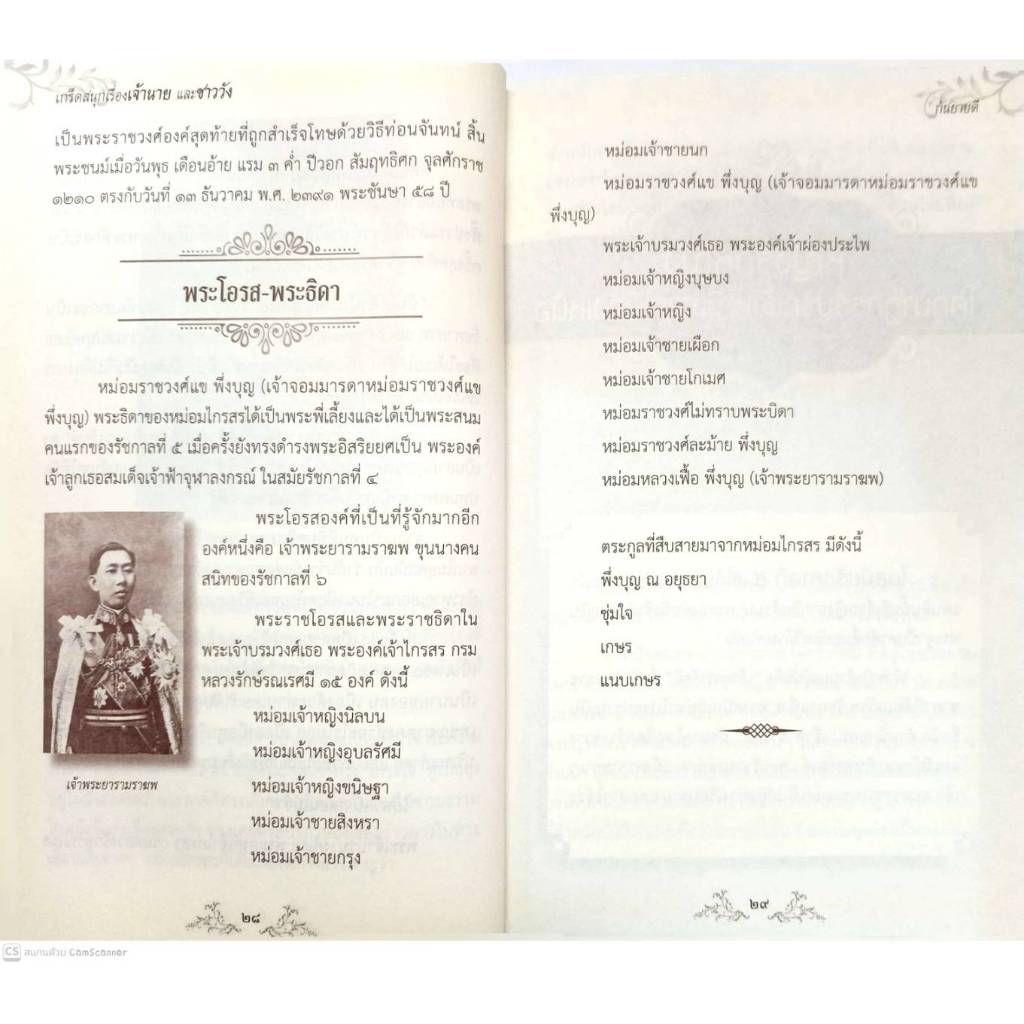 เกร็ดสนุกเรื่องเจ้านาย และชาววัง
เป็นพระราชวงศ์องค์สุดท้ายที่ถูกสำเร็จโทษด้วยวิธีท่อนจันทน์ สิ้น
พระชนม์เมื่อวันพุธ เดือนอ้าย แรม ๓ ค่ำ ปีวอก สัมฤทธิศก จุลศักราช
๑๒๑๐ ตรงกับวันที่ ๑๓ ธันวาคม พ.ศ. ๒๓๙๑ พระชันษา ๕๘ ปี
พระโอรส-พระธิดา
หม่อมราชวงศ์แข พึ่งบุญ (เจ้าจอมมารดาหม่อมราชวงศ์แข
พึ่งบุญ) พระธิดาของหม่อมไกรสรได้เป็นพระพี่เลี้ยงและได้เป็นพระสนม
คนแรกของรัชกาลที่ ๕ เมื่อครั้งยังทรงดำรงพระอิสริยยศเป็น พระองค์
เจ้าลูกเธอสมเด็จเจ้าฟ้าจุฬาลงกรณ์ ในสมัยรัชกาลที่ ๔
พระโอรสองค์ที่เป็นที่รู้จักมากอีก
องค์หนึ่งคือ เจ้าพระยารามราฆพ ขุนนางคน
สนิทของรัชกาลที่ ๖
พระราชโอรสและพระราชธิดาใน
พระเจ้าบรมวงศ์เธอ พระองค์เจ้าไกรสร กรม
หลวงรักษ์รณเรศมี ๑๕ องค์ ดังนี้
หม่อมเจ้าหญิงนิลบน
หม่อมเจ้าหญิงอุบลรัศมี
หม่อมเจ้าหญิงขนิษฐา
หม่อมเจ้าชายสิงหรา
หม่อมเจ้าชายกรุง
เจ้าพระยารามราฆพ
๒๘
กันยายตี
หม่อมเจ้าชายนก
หม่อมราชวงศ์แข พึ่งบุญ (เจ้าจอมมารดาหม่อมราชวงศ์แข
พึ่งบุญ)
พระเจ้าบรมวงศ์เธอ พระองค์เจ้าผ่องประไพ
หม่อมเจ้าหญิงบุษบง
หม่อมเจ้าหญิง
หม่อมเจ้าชายเผือก
หม่อมเจ้าชายโกเมศ
หม่อมราชวงศ์ไม่ทราบพระบิดา
หม่อมราชวงศ์ละม้าย พึ่งบุญ
หม่อมหลวงเฟื้อ พึ่งบุญ (เจ้าพระยารามราฆพ)
ตระกูลที่สืบสายมาจากหม่อมไกรสร มีดังนี้
พึ่งบุญ ณ อยุธยา
ชุ่มใจ
เกษร
แนบเกษร
๒๙
CS สแกนด้วย CamScanner